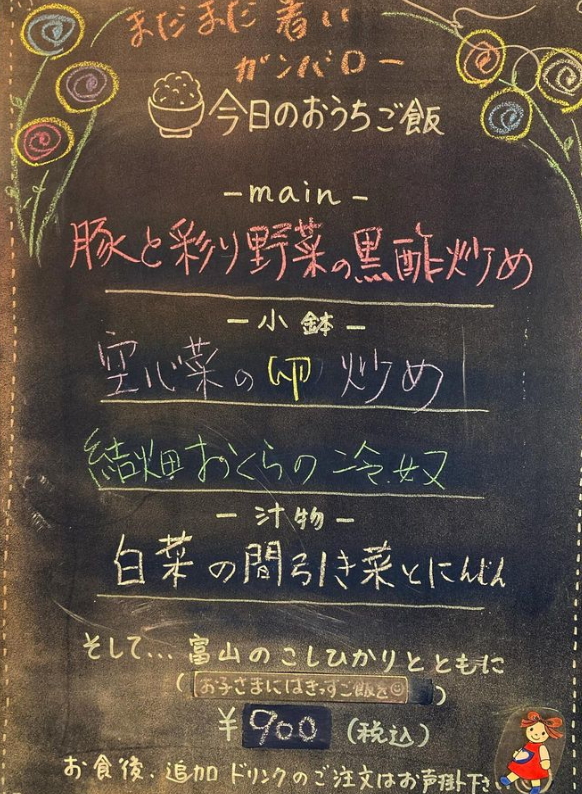 まだまだ暑い
ガンバロー
今日のおうちご飯
-main-
豚と彩り野菜の黒酢炒め
-小鉢-
空心菜の卵炒め
結畑おくらの冷奴
-汁物-
白菜の間引き菜とにんじん
そして...富山のこしひかりとともに
(お子さまにはきっずご飯を☺)
¥900(税込)
お食後、追加ドリンクのご注文はお声掛下さい